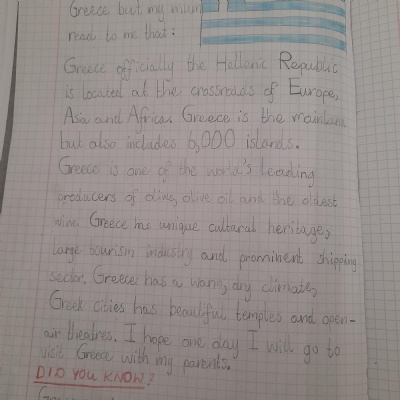 Greece but my mum
read to me that:
Greece officially the Hellenic Republic
is located at the crossroads of Europe,
Asia and Africa. Greece is the mainland
but also includes 6,000 islands.
Greece is one of the world's leading
producers of olive, olive oil and the oldest
wine. Greece has unique cultural heritage,
large tourism industry and prominent shipping
sector. Greece has a warm, dry climate,
Greek cities has beautiful temples and open-
air theatres. I hope one day I will go to
visit Greece with my parents.
DID YOU KNOW?